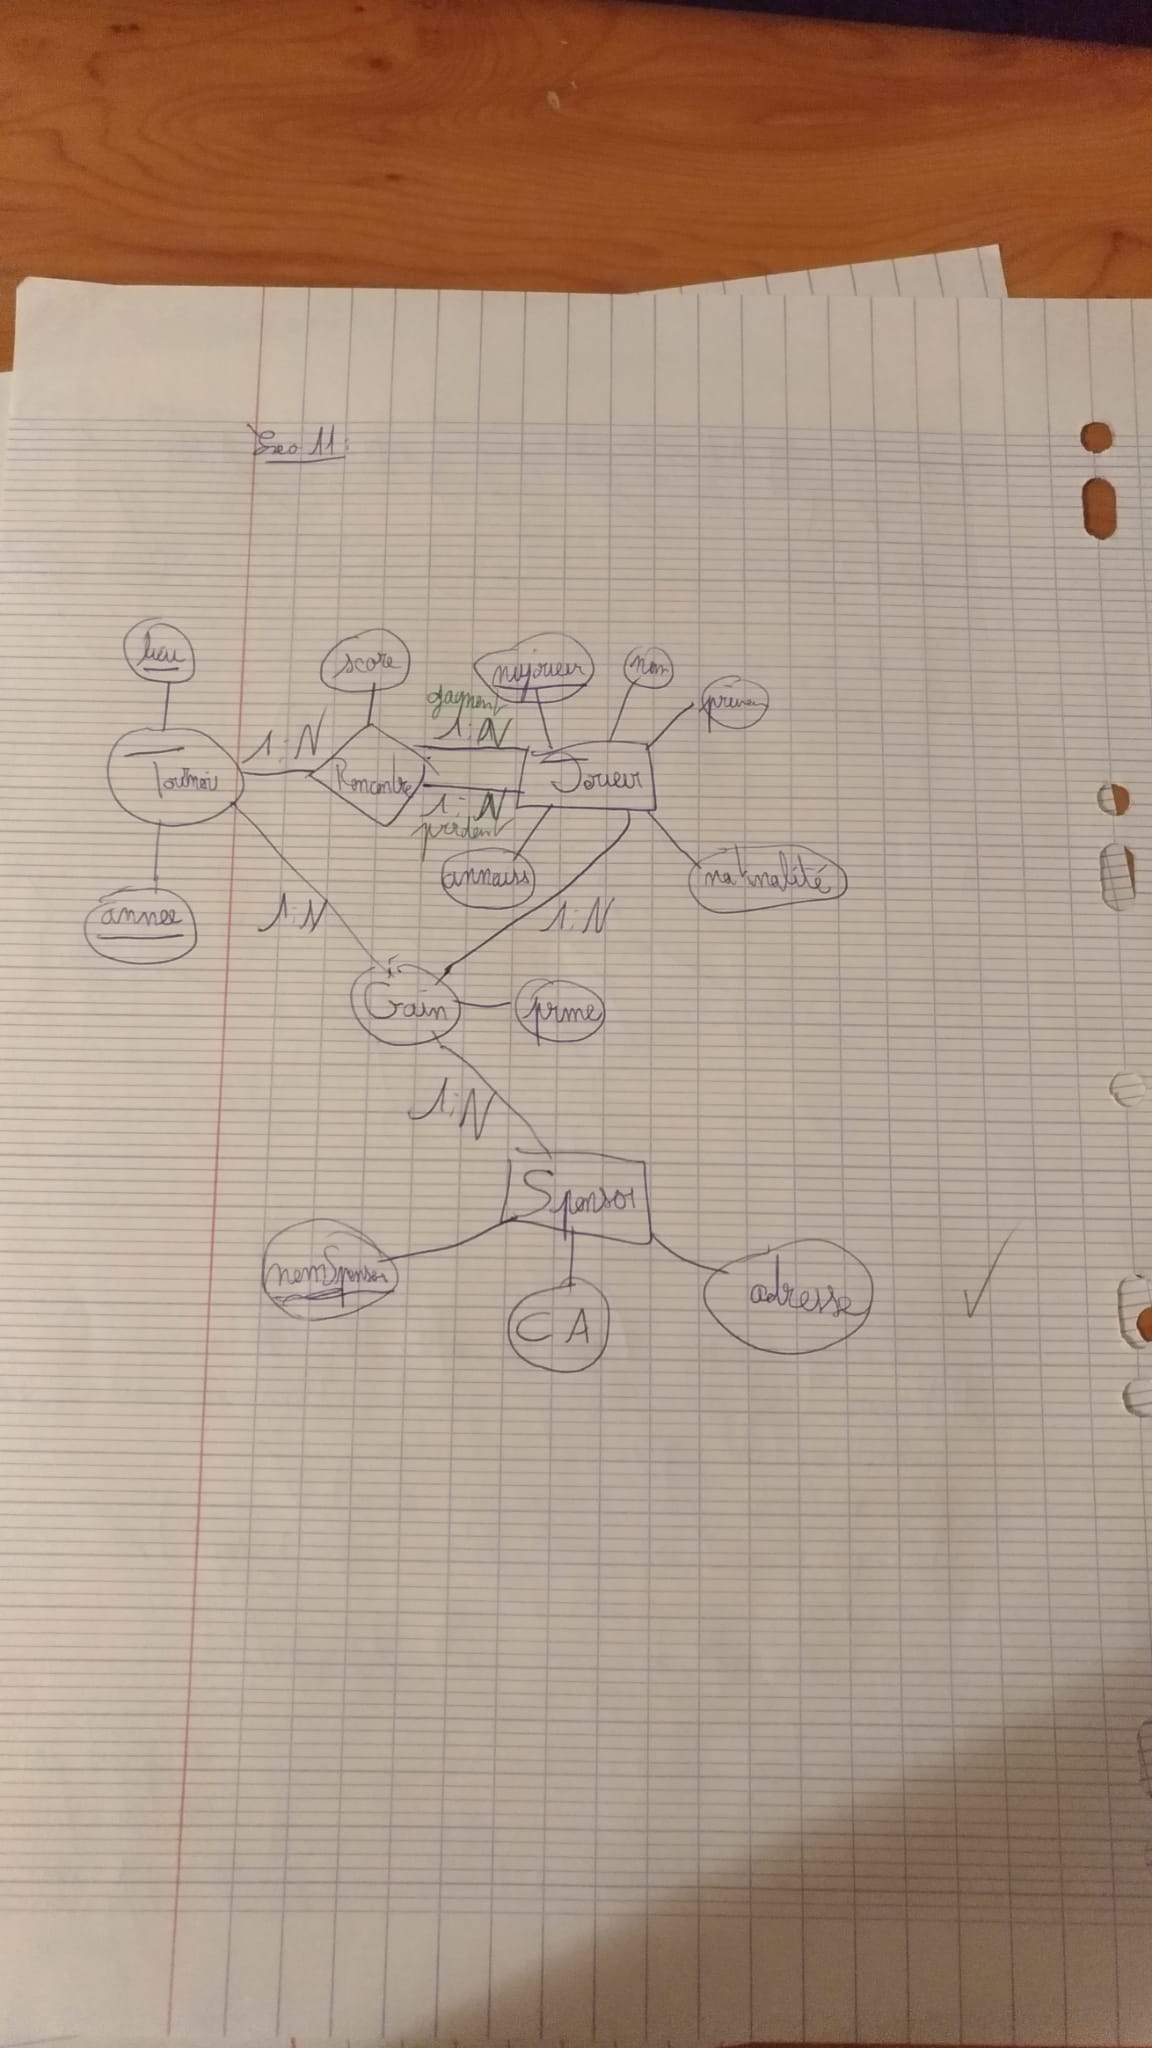 Exo 11:
lieu
score
nujoueur
nom
prénom
gagnent
1:N
1:N
Tournoi
Rencontre
Joueur
1:N
perdent
annaiss
nationalité
année
1:N
1:N
Gain
prime
1:N
Sponsor
nomSponsor
CA
adresse